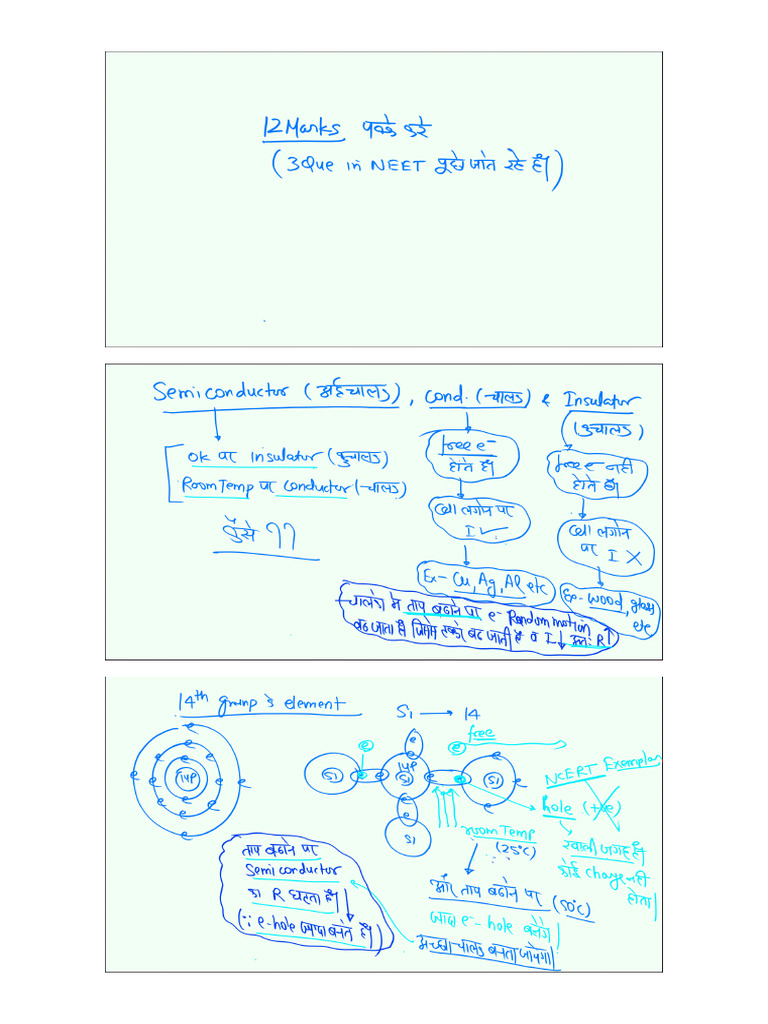 12 Marks पक्के करे
(3 Que in NEET पूछे जाते रहे हैं)
Semiconductor (अर्द्धचालक), Cond. (चालक) & Insulator
(कुचालक)
OK पर Insulator (कुचालक)
Room Temp पर Conductor (चालक)
कैसे ??
free e-
होते हैं
free e- नहीं
होते हैं
Cell लगाने पर
I ✓
Cell लगाने
पर I X
Ex- Cu, Ag, Al etc
Ex- wood, glass
etc
चालकों में ताप बढ़ाने पर e- Random motion
बढ़ जाता है जिससे टक्करे बढ़ जाती है व I↓ इसलिए R↑
14th group's element
Si → 14
free
e
e
e
e
e
e
e
e
e
e
e
e
14p
Si
14p
Si
Si
Si
e
e
e
e
NCERT Exemplar
hole (+ve)
room Temp
(25°C)
खाली जगह है।
कोई charge नहीं
होता।
ताप बढ़ाने पर
Semiconductor
का R घटता है।
(∵ e-hole ज्यादा बनते हैं)
और ताप बढ़ाने पर (50°C)
ज्यादा e- hole बनेंगे।
अच्छा चालक बनता जायेगा।